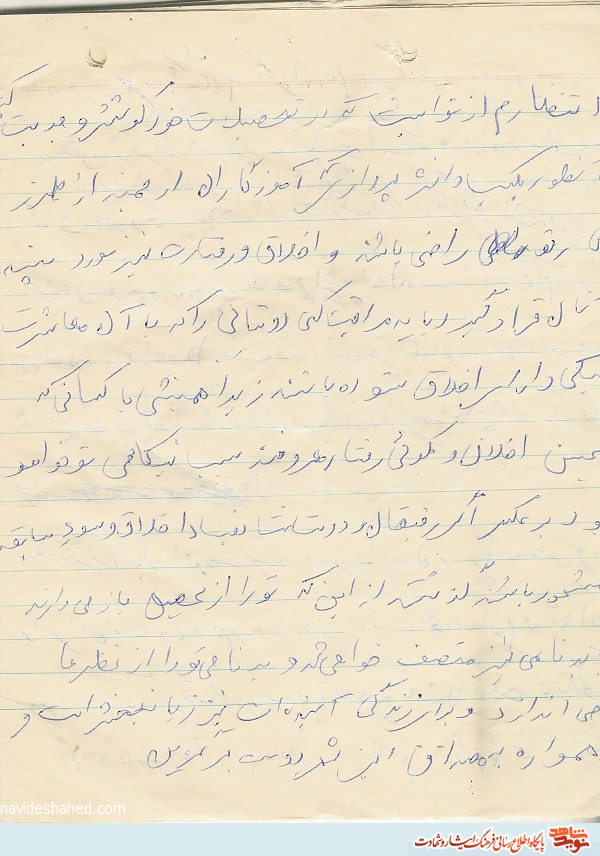 انتظارم از تو آنست که در تحصیلات خود کوشش و جدیت
بطور یکه و دانش پردازی که آموزگاران ارجمند از طرز
راضی باشند و اخلاق و رفتارت نیز مورد
قرار گیرد باید مراقبت کنی دوستانی را که با آن معاشرت
دارای اخلاق ستوده باشند زیرا همنشینی با کسانی که
اخلاق و نکوئی رفتار معروفند سبب نیکنامی تو خواهد
بود برعکس اگر رفیقان و دوستانت بفساد اخلاق و سوء سابقه
مشهور باشند گذشته از این که تو را از تحصیل باز می دارند
بدنامی نیز متصف خواهی شد و بدنامی تو را از نظرها
می اندازد و برای زندگی آینده ات نیز زیانبخش است و
همواره به مصداق این شعر دوست
navideshahed.com
نوید شاهد
پایگاه اطلاع رسانی فرهنگ ایثار و شهادت